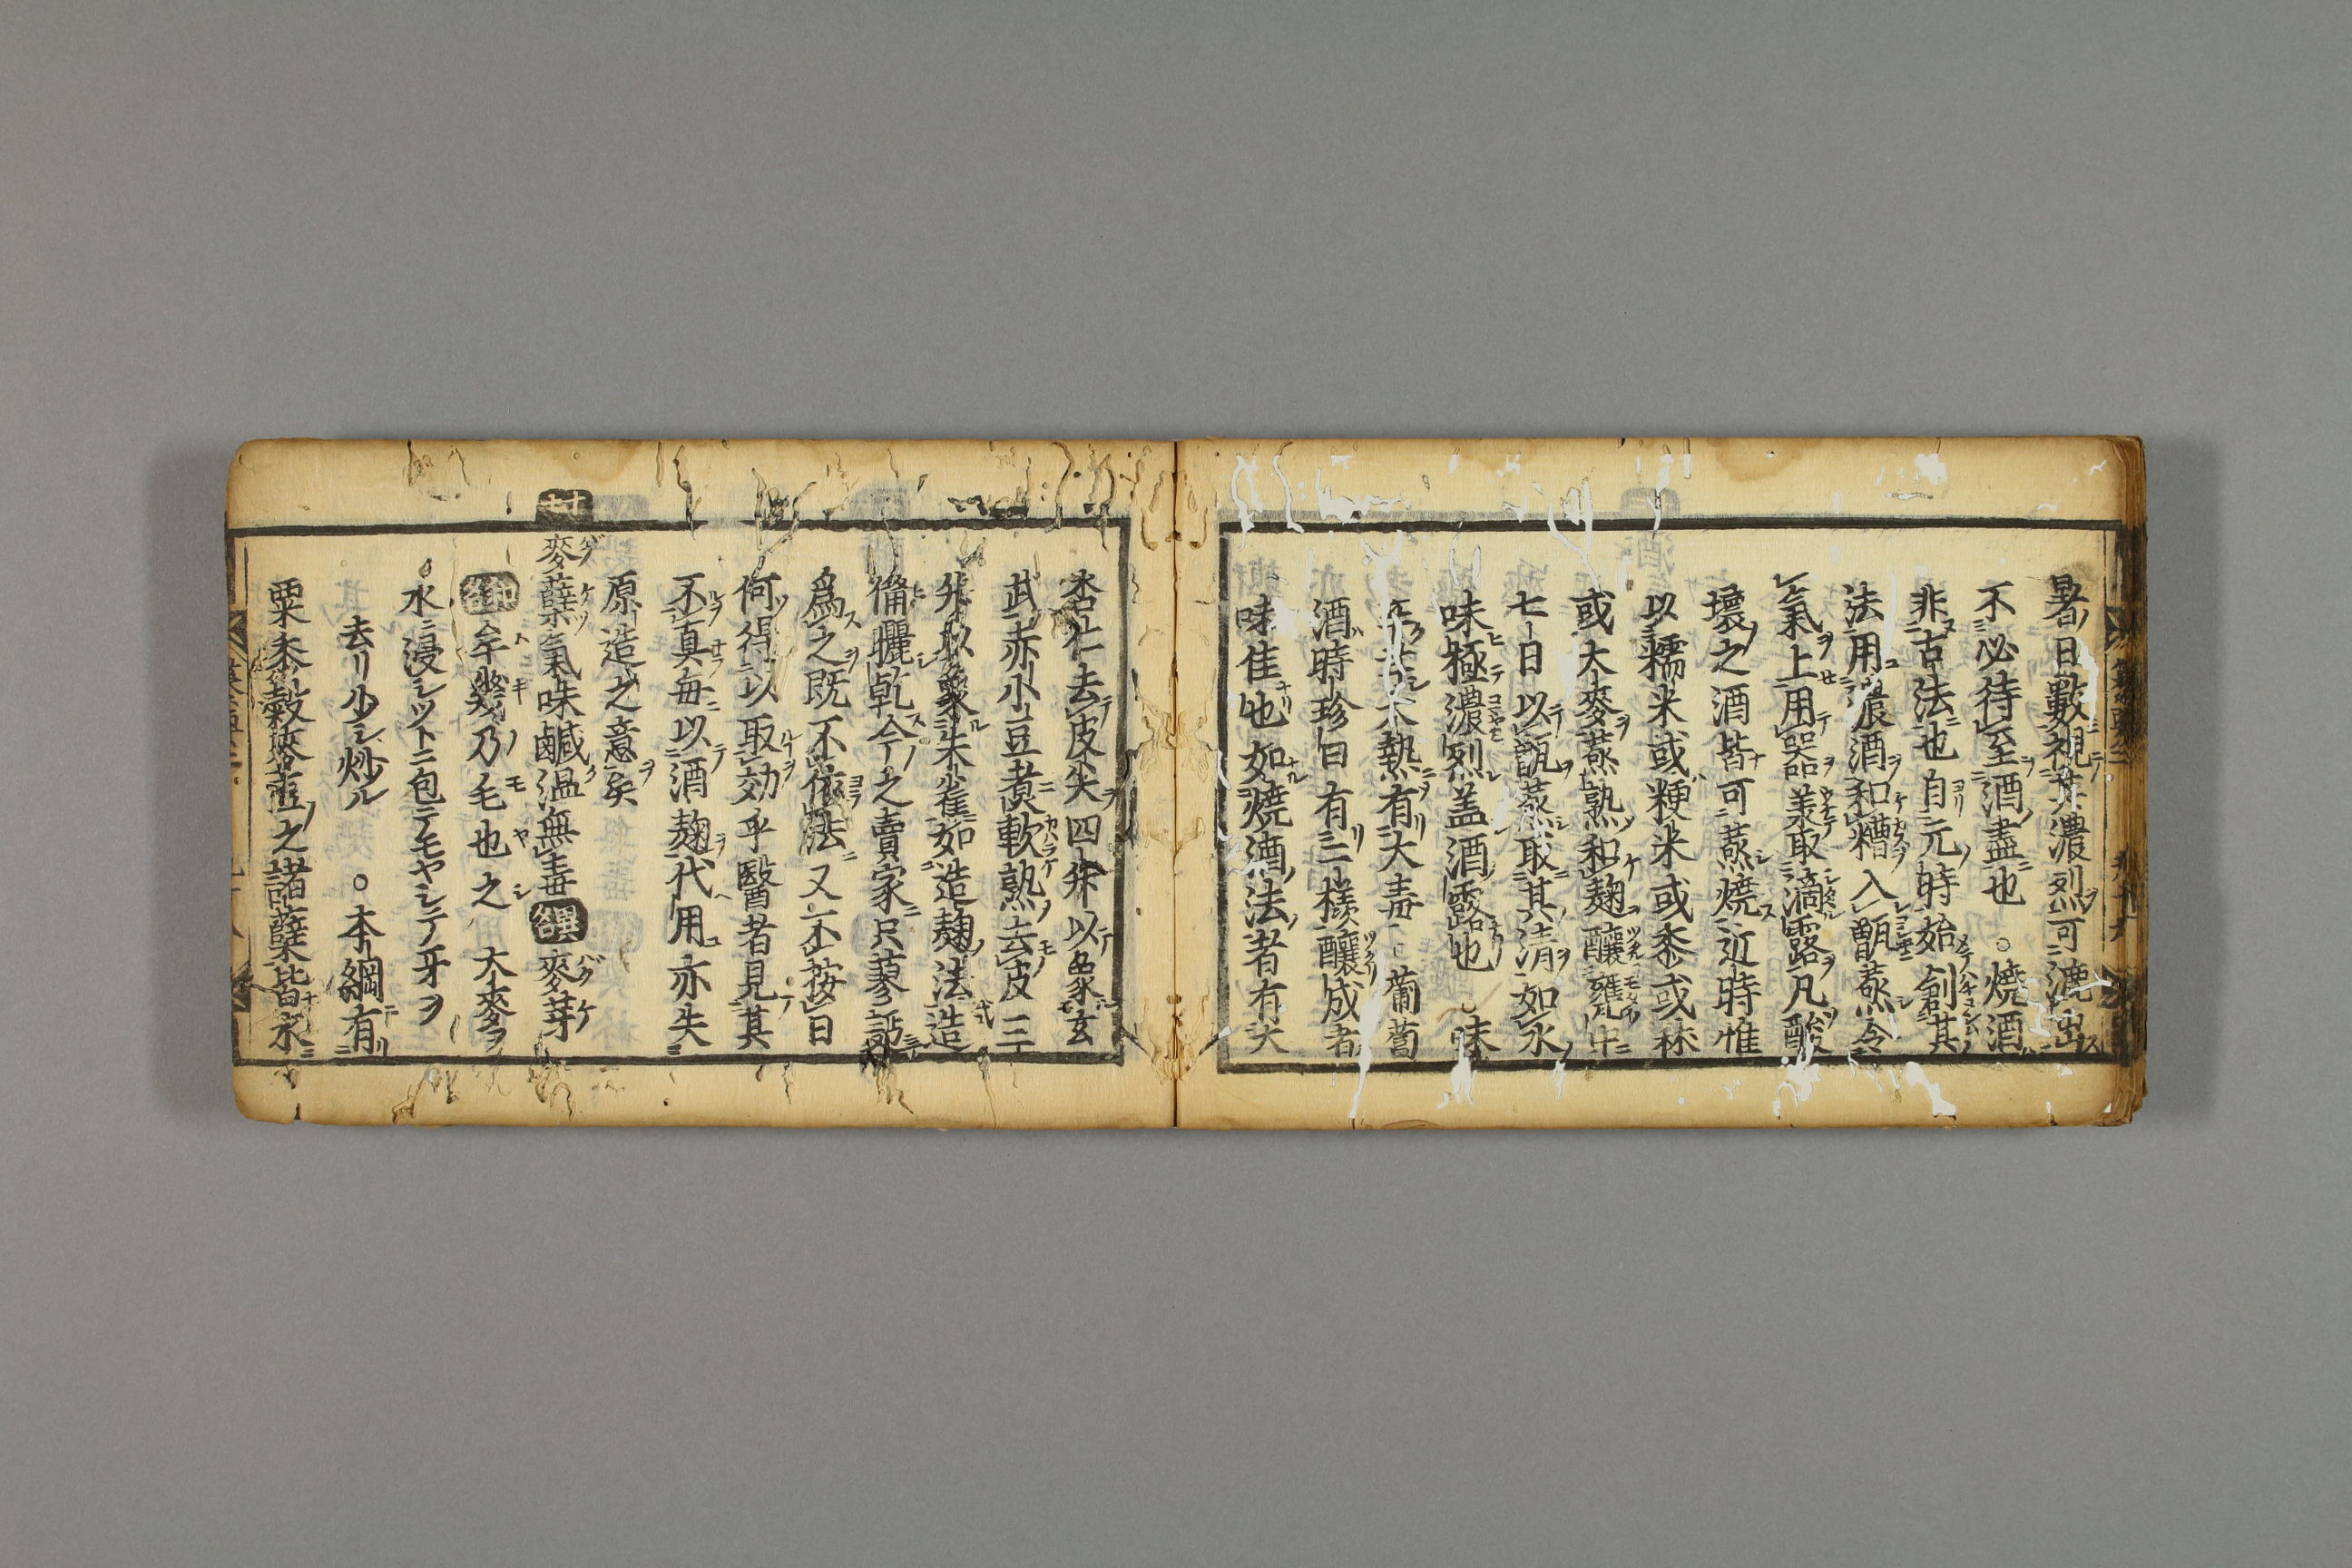 暑日數視其濃烈可漉出
不必待至酒盡也○燒酒
非古法也自元時始創其
法用濃酒和糟入甑蒸令
氣上用器羕取滴露凡酸
壞之酒皆可蒸燒近時惟
以糯米或粳米或黍或秫
或大麥蒸熟和麹釀甕中
七日以甑蒸取其清如水
味極濃烈盖酒露也
大熱有大毒○葡萄
酒時珍曰有三樣釀成者
味佳也如燒酒法者有大
杏仁去皮尖四升以象玄
武赤小豆煮軟熟去皮三
升以象朱雀如造麹法造
備曬乾今之賣家只
爲之既不依法又不按日
何得以取効乎醫者見其
不真每以酒麹代用亦失
原造之意矣
麥蘖氣味鹹温無毒 麥芽
牟幾乃毛也之 大麥ヲ
水ニ浸シツトニ包テモヤシテ牙ヲ
去リ少シ炒ル ○本綱有
粟黍穀麥荳之諸蘖皆水